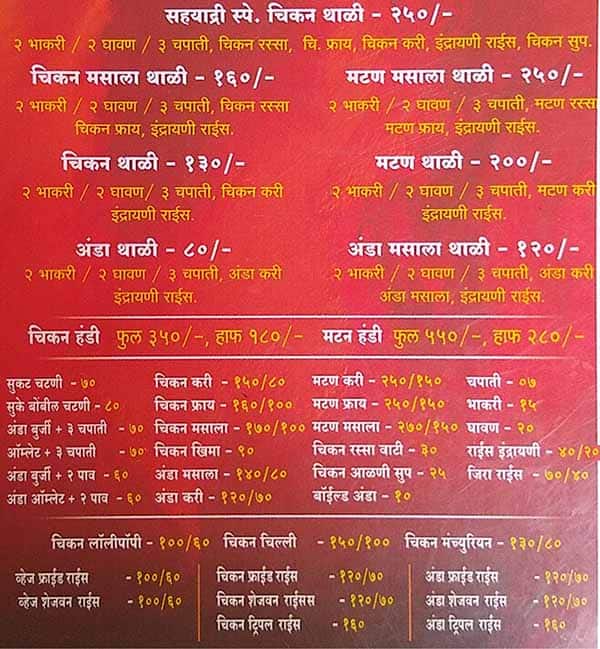 सहयाद्री स्पे. चिकन थाळी - २५०/-
२ भाकरी / २ घावण / ३ चपाती, चिकन रस्सा, चि. फ्राय, चिकन करी, इंद्रायणी राईस, चिकन सुप.
चिकन मसाला थाळी - १६०/-
२ भाकरी / २ घावण / ३ चपाती, चिकन रस्सा
चिकन फ्राय, इंद्रायणी राईस.
मटण मसाला थाळी - २५०/-
२ भाकरी / २ घावण / ३ चपाती, मटण रस्सा
मटण फ्राय, इंद्रायणी राईस.
चिकन थाळी - १३०/-
२ भाकरी / २ घावण / ३ चपाती, चिकन करी
इंद्रायणी राईस.
मटण थाळी - २००/-
२ भाकरी / २ घावण / ३ चपाती, मटण करी
इंद्रायणी राईस.
अंडा थाळी - ८०/-
२ भाकरी / २ घावण / ३ चपाती, अंडा करी
इंद्रायणी राईस.
अंडा मसाला थाळी - १२०/-
२ भाकरी / २ घावण / ३ चपाती, अंडा करी
अंडा मसाला, इंद्रायणी राईस.
चिकन हंडी फुल ३५०/-, हाफ १८०/-
मटन हंडी फुल ५५०/-, हाफ २८०/-
सुकट चटणी - ७०
सुके बोंबील चटणी - ८०
अंडा बुर्जी + ३ चपाती - ७०
ऑम्लेट + ३ चपाती - ७०
अंडा बुर्जी + २ पाव - ६०
अंडा ऑम्लेट + २ पाव - ६०
चिकन करी - १५०/८०
चिकन फ्राय - १६०/१००
चिकन मसाला - १७०/१००
चिकन खिमा - ९०
अंडा मसाला - १४०/८०
अंडा करी - १२०/७०
मटण करी - २५०/१५०
मटण फ्राय - २५०/१५०
मटण मसाला - २७०/१५०
चिकन रस्सा वाटी - ३०
चिकन आळणी सुप - २५
बॉईल्ड अंडा - १०
चपाती - ०७
भाकरी - १५
घावण - २०
राईस इंद्रायणी - ४०/२०
जिरा राईस - ७०/४०
चिकन लॉलीपॉपी - १००/६० चिकन चिल्ली - १५०/१०० चिकन मंच्युरियन - १३०/८०
व्हेज फ्राईड राईस - १००/६०
व्हेज शेजवान राईस - १००/६०
चिकन फ्राईड राईस - १२०/७०
चिकन शेजवान राईसस - १२०/७०
चिकन ट्रिपल राईस - १६०
अंडा फ्राईड राईस - १२०/७०
अंडा शेजवान राईस - १२०/७०
अंडा ट्रिपल राईस - १६०